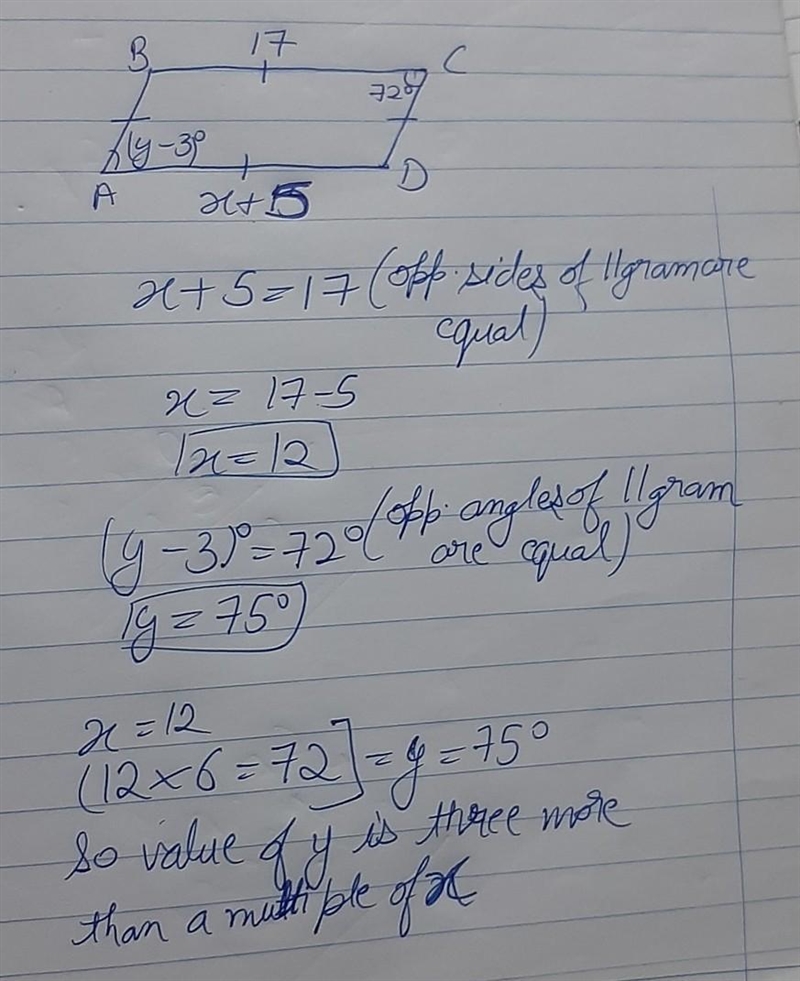 17
B C
72°
(y-3)°
A D
x+5
x+5=17 (opp. sides of ||gram are
equal)
x= 17-5
x=12
(y-3)°=72° (opp. angles of ||gram
are equal)
y=75°
x=12
(12×6=72]=y=75°
So value of y is three more
than a multiple of x